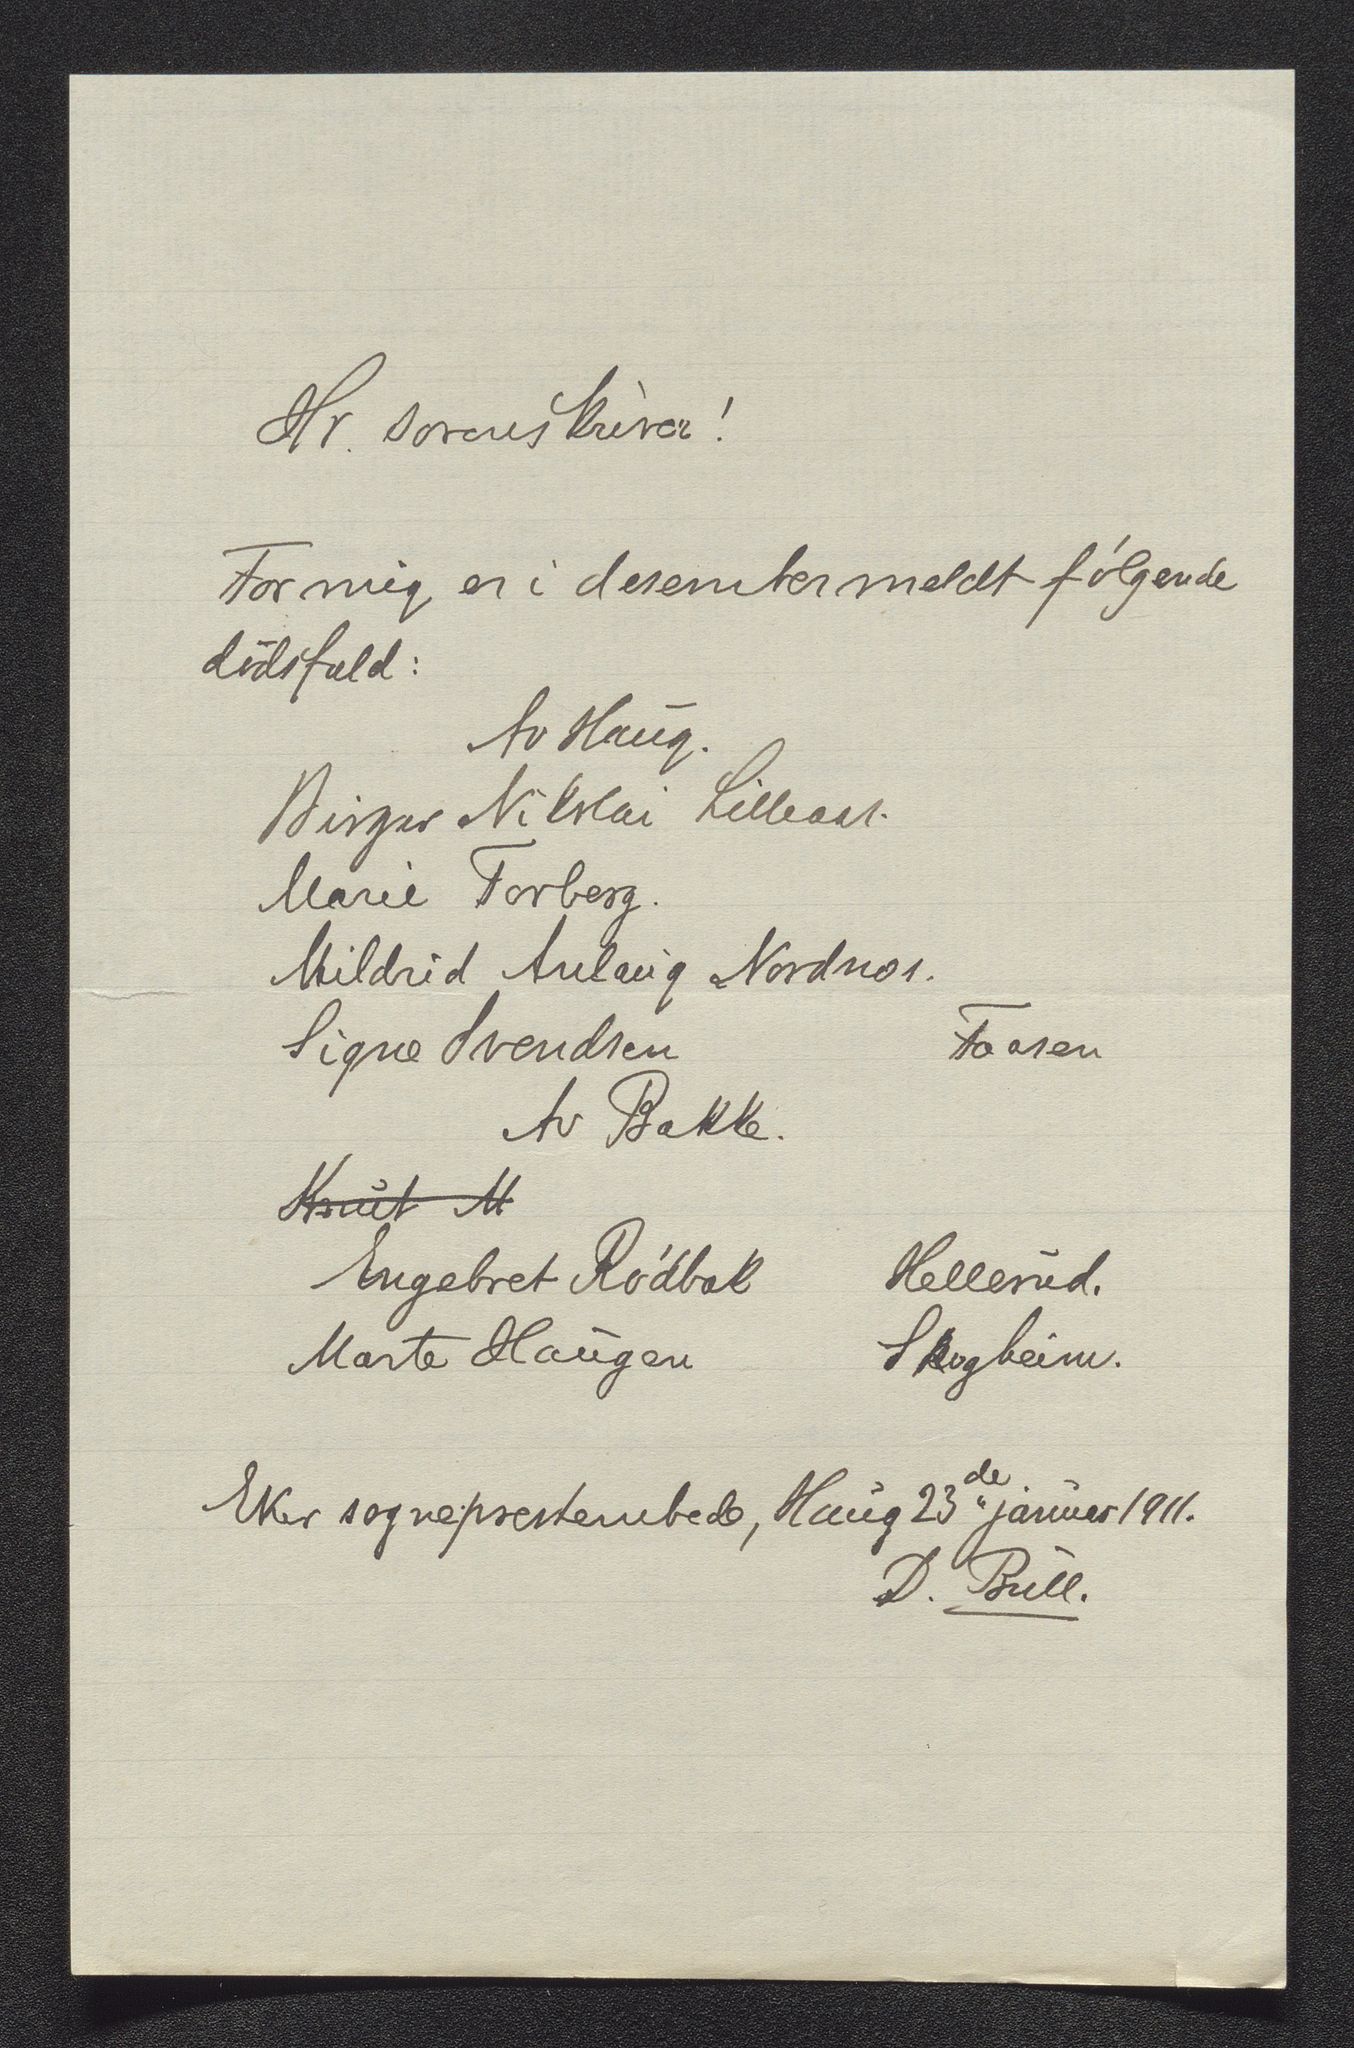 Hr. sorenskriver!
For mig er i desember meldt følgende
dødsfald:
Av Haug.
Birger Nikolai Lilleaas.
Marie Forberg.
Mildrid Aslaug Nordmos.
Signe Svendsen Faasen
Av Bakke.
Knut M
Engebret Rødbak Hellerud.
Marte Haugen Skogheim.
Eker sogneprestembede, Haug 23de januar 1911.
D. Bull.